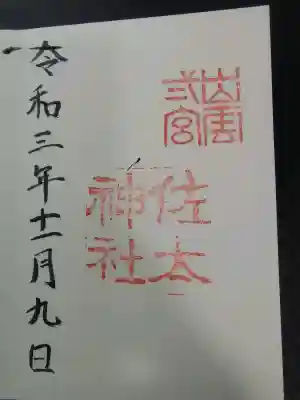 出雲
弍宮
佐太
神社
令和三年十一月九日